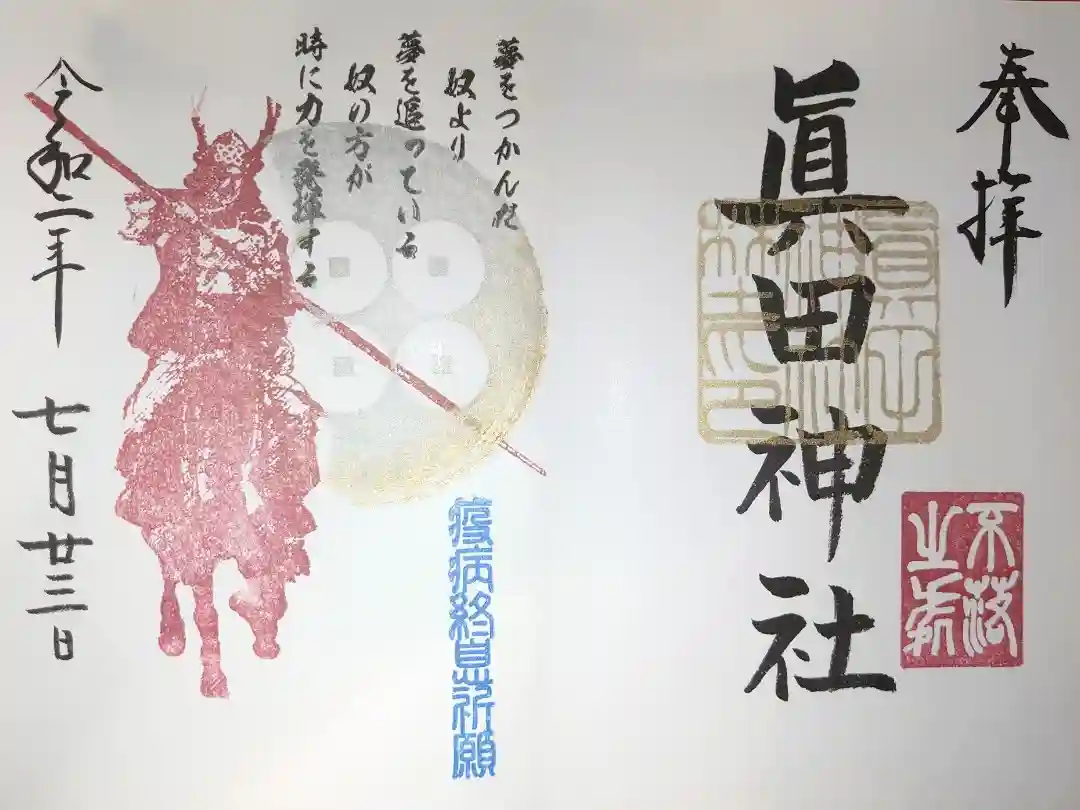 奉拝
眞田神社
眞田神社之印
不落之城
夢をつかんだ
奴より
夢を追っている
奴の方が
時に力を発揮する
疫病終息祈願
令和二年 七月廿三日